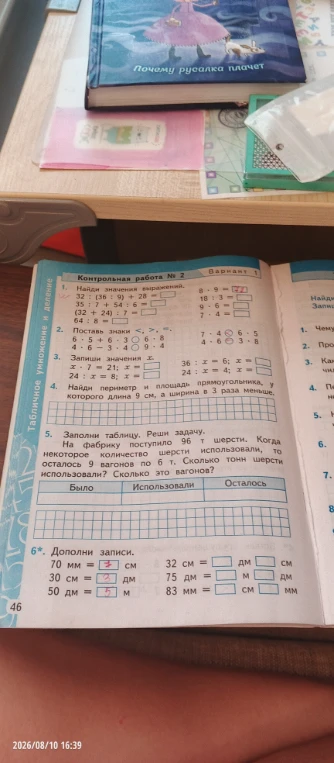 Почему русалка плачет
Контрольная работа № 2 Вариант 1
1. Найди значения выражений.
32 : (36 : 9) + 28 =
8 · 9 = 72
35 : 7 + 54 : 6 =
18 : 3 =
(32 + 24) : 7 =
9 · 6 =
64 : 8 =
7 · 4 =
2. Поставь знаки <, >, =.
6 · 5 + 6 · 3 ○ 6 · 8
7 · 4 < 6 · 5
4 · 6 − 3 · 4 ○ 9 · 4
4 · 6 ○ 3 · 8
3. Запиши значения x.
x · 7 = 21; x =
36 : x = 6; x =
24 : x = 8; x =
24 : x = 4; x =
4. Найди периметр и площадь прямоугольника, у
которого длина 9 см, а ширина в 3 раза меньше.
5. Заполни таблицу. Реши задачу.
На фабрику поступило 96 т шерсти. Когда
некоторое количество шерсти использовали, то
осталось 9 вагонов по 6 т. Сколько тонн шерсти
использовали? Сколько это вагонов?
Было Использовали Осталось
6*. Дополни записи.
70 мм = 7 см
32 см = дм см
30 см = 3 дм
75 дм = м дм
50 дм = 5 м
83 мм = см мм
46
Табличное умножение и деление
1. Чему
2. Про
3.
4.
5.
6.
7.
8
2026/08/10 16:39